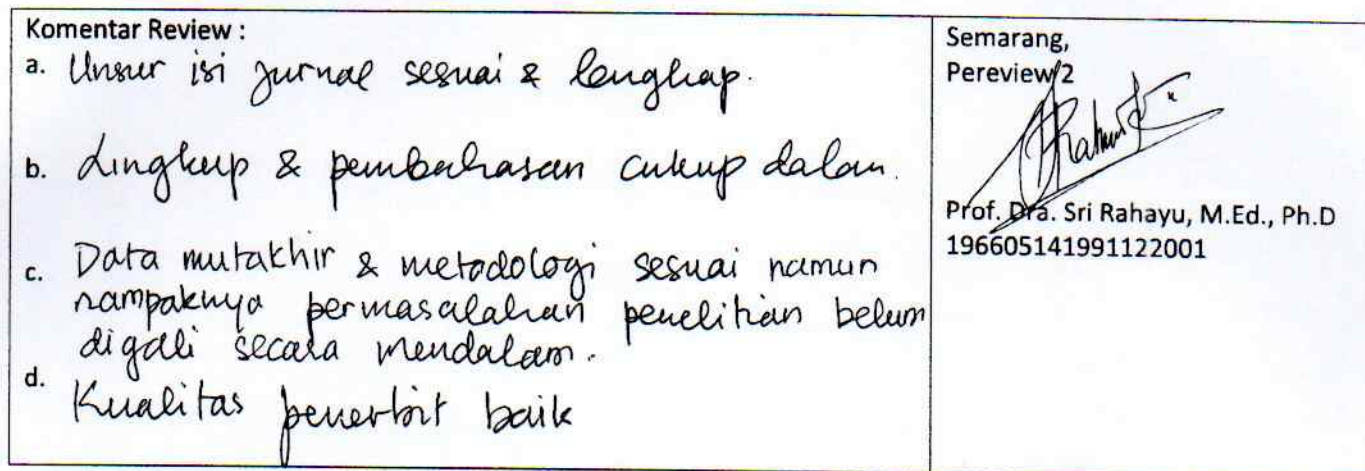 Komentar Review :
a. Unsur isi jurnal sesuai & lengkap.
b. Lingkup & pembahasan cukup dalam.
c. Data mutakhir & metodologi sesuai namun
nampaknya permasalahan penelitian belum
digali secara mendalam.
d. Kualitas penerbit baik
Semarang,
Pereview 2
Prof. Dra. Sri Rahayu, M.Ed., Ph.D
196605141991122001